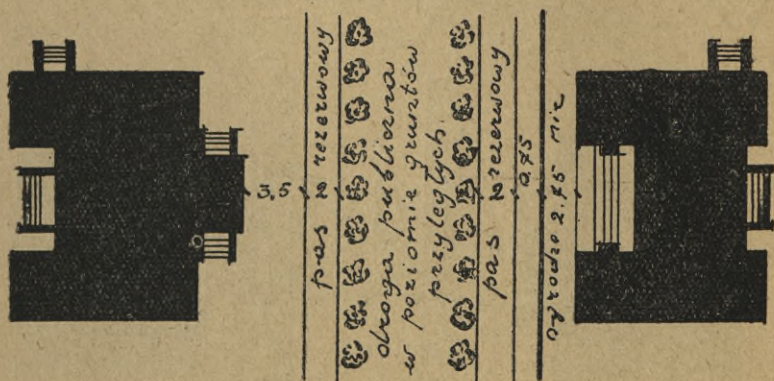 3,5
pas 2 rezerwowy
droga publiczna
w poziomie gruntów
przyległych
pas 2 rezerwowy
0.75
ogrodze 2.75 nie